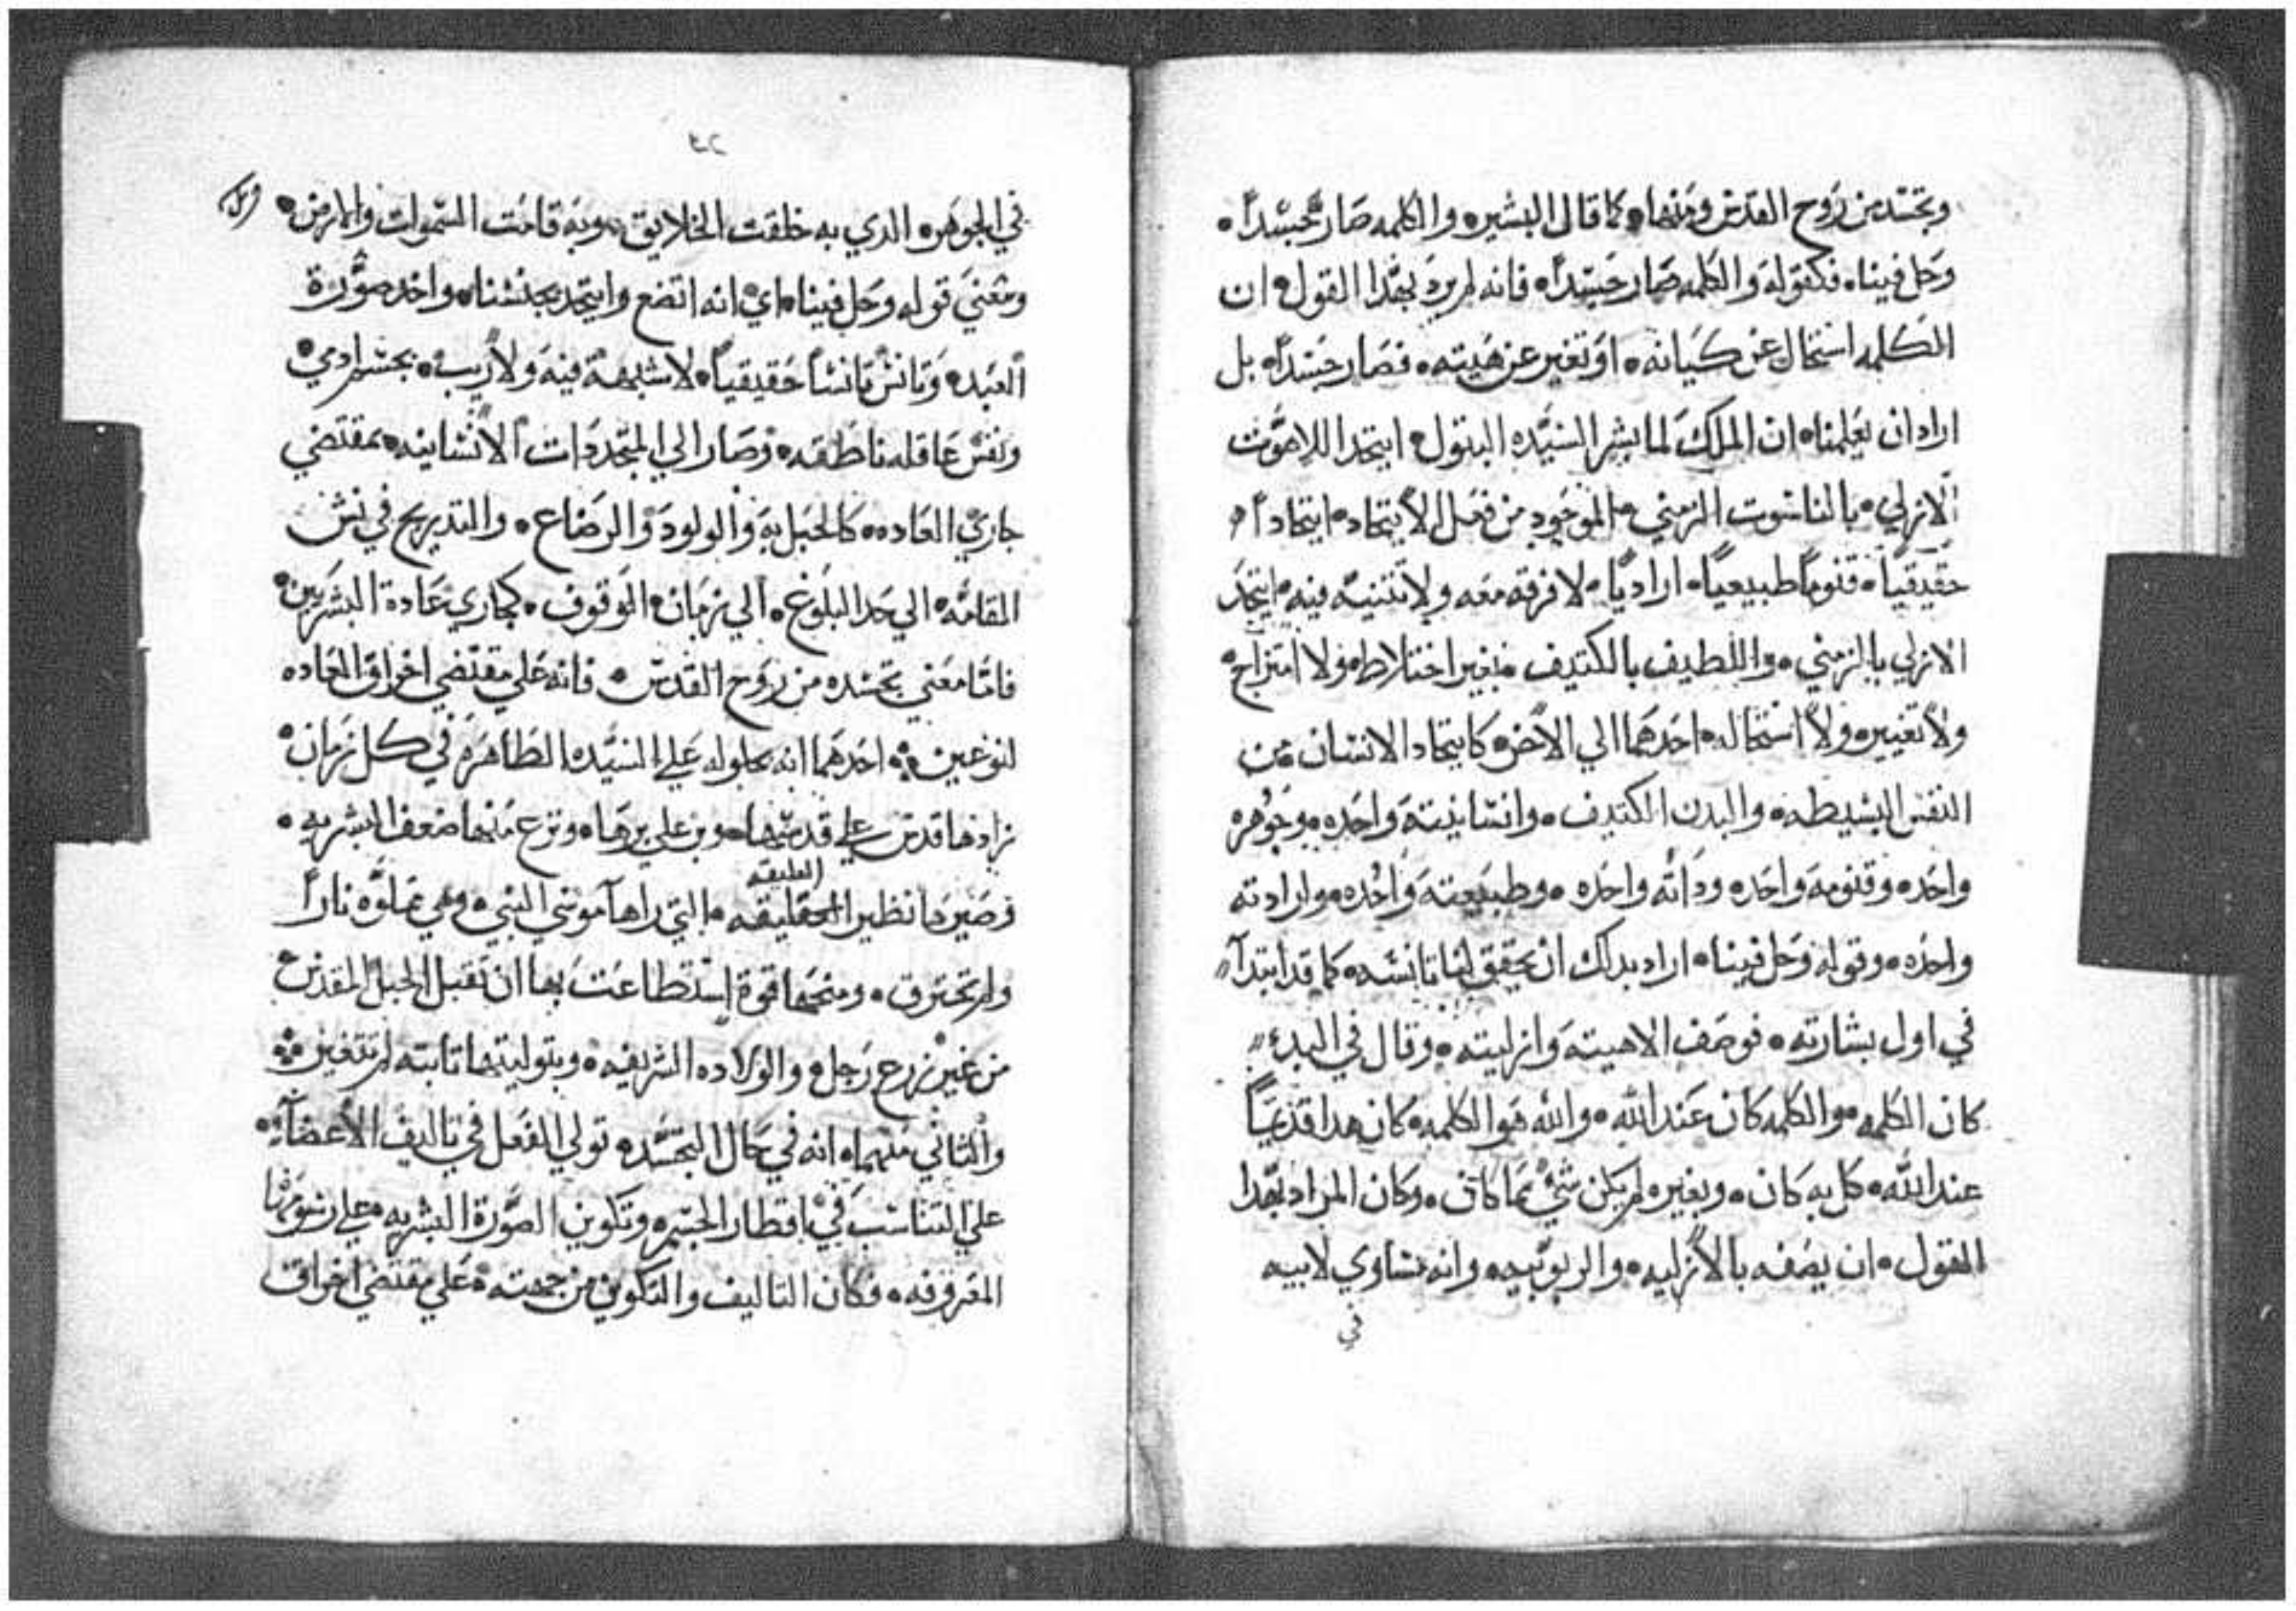 وتجسد من روح القدس ومنها، كما قال البشير، والكلمه صار جسداً،
وحل فينا، فكقوله والكلمه صار جسداً، فانه لم يرد بهدا القول، ان
الكلمه استحال عن كيانه، او تغير عن هيته، فصار جسداً، بل
اراد ان يعلمنا، ان الملك لما بشر السيده البتول، ايتحد اللاهوت
الازلي، بالناسوت الزمني، الموجود من فعل الايتحاد، ايتحاداً،
حقيقياً، قنوماً طبيعياً، ارادياً، لا فرقه معه ولا تتنيه فيه، ايتحد
الازلي بالزمني، واللطيف بالكتيف، بغير اختلاط، ولا امتزاج،
ولا تغيير، ولا استحاله، احدهما الي الاخر، كايتحاد الانسان من
النفس البسيطه، والبدن الكتيف، وانسانيته واحده، وجوهره
واحده، وقنومه واحده، وداته واحده، وطبيعته واحده، وارادته
واحده، وقوله وحل فينا، اراد بدلك ان يحقق لنا تانسه، كما قد ابتدآ
في اول بشارته، فوصف الاهيته وازليته، وقال في البدء
كان الكلمه، والكلمه كان عند الله، والله هو الكلمه، كان هدا قديماً
عند الله، كل به كان، وبغيره لم يكن شيء مما كان، وكان المراد بهدا
القول، ان يصفه بالازليه، والربوبيه، وانه مساوي لابيه
في
٢٩
في الجوهر، الدي به خلقت الخلايق، وبه قامت السموات والارض،
ومعني قوله وحل فينا، اي انه اتضع وايتحد بجنسنا، واخد صورة
العبد، وتانس تانساً حقيقياً، لا شبهة فيه ولا ريب، بجسم ادمي،
ونفس عاقله ناطقه، وصار الي المتجددات الانسانيه، بمقتضي
جاري العاده، كالحبل به، والولود والرضاع، والتدريج في نشو
القامه، الي حد البلوغ، الي زمان الوقوف، كجاري عادة البشريين،
فاما معني تجسده من روح القدس، فانه علي مقتضي اخراق العاده
لنوعين، احدهما انه بحلوله علي السيده الطاهره في كل زمان،
زادها قدس علي قدسها، وبر علي برها، ونزع منها ضعف البشريه،
وصيرها نظير العليقه، التي راها موسي النبي، وهي مملوه ناراً
ولم تحترق، ومنحها قوة استطاعت بها ان تقبل الحبل المقدس
من غير زرع رجل، والولاده الشريفه، وبتوليتها تابته لم تتغير،
والتاني منهما، انه في حال التجسد، تولي الفعل في تاليف الاعضآ،
علي التناسب في اقطار الجسم، وتكوين الصورة البشريه، علي رسومها
المعروفه، فكان التاليف والتكوين من جهته، علي مقتضي اخراق